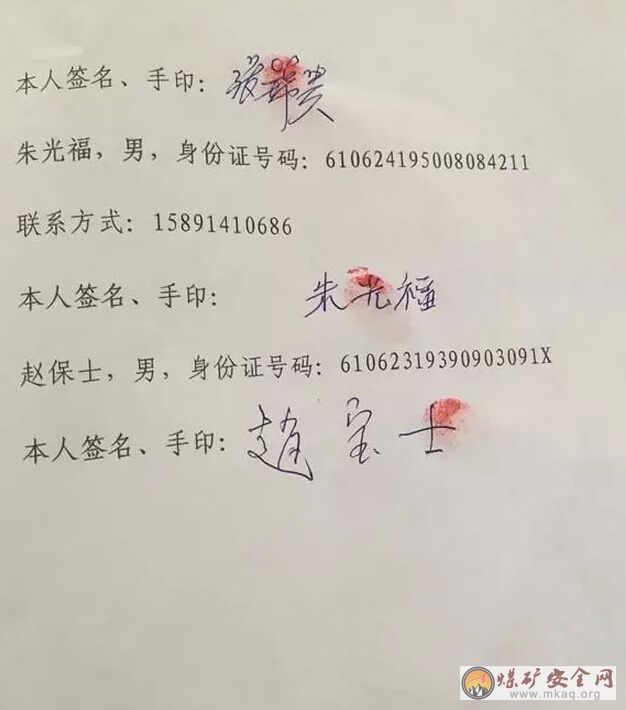 本人签名、手印：张
朱光福，男，身份证号码：610624195008084211
联系方式：15891410686
本人签名、手印：朱光福
赵保士，男，身份证号码：61062319390903091X
本人签名、手印：赵宝士
煤矿安全网
www.mkaq.org